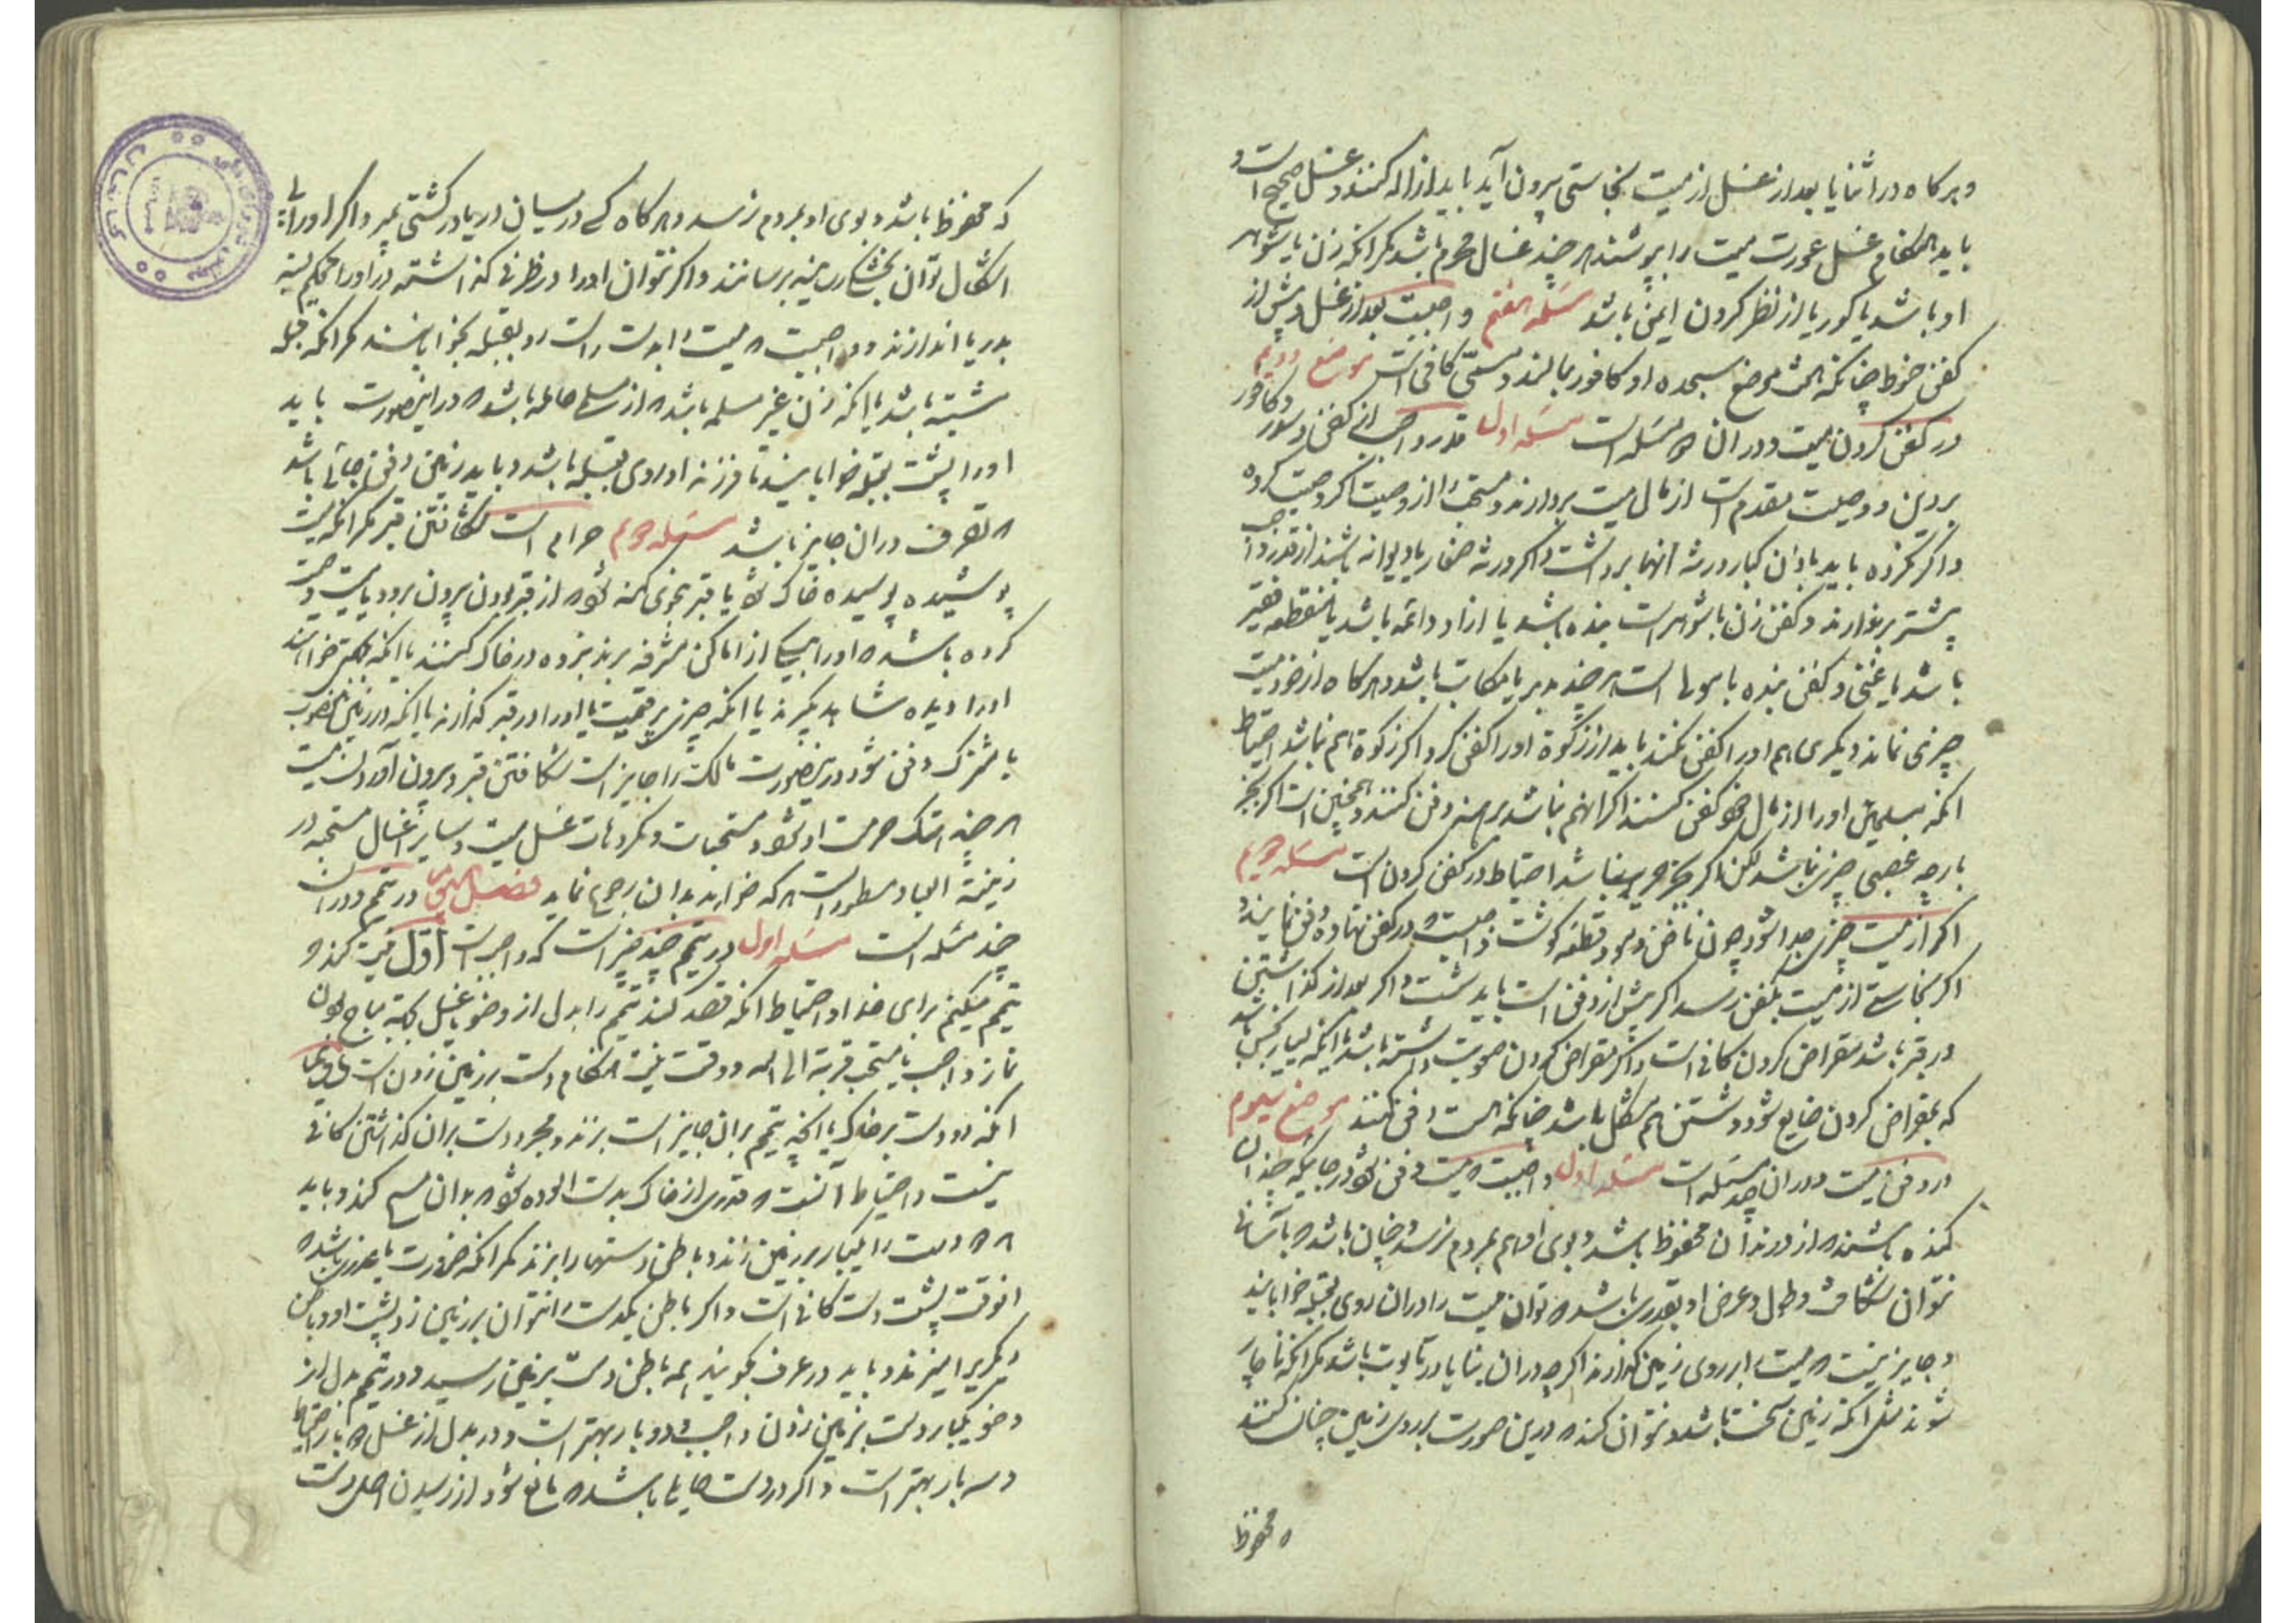 و هر کاه در اثنا یا بعد از غسل از میت نجاستی بیرون آید باید ازاله کنند و غسل صحیح است و
باید هنکام غسل عورت میت را بپوشند هر چند غسال محرم باشد مکر انکه زن یا شوهر
او باشد یا کور یا از نظر کردن ایمن باشد مسئله هفتم واجبست بعد از غسل و پیش از
کفن حنوط چنانکه هشت موضع سجده او کافور بمالند و مسمّی کافی است موضع دویم
در کفن کردن میت و در ان مسئله است مسئله اول قدر واجبی کفن و سدر و کافور
بر دین و وصیت مقدم است از مال میت بردارند و مستحب را از وصیت اکر وصیت کرده
و اکر نکرده باید باذن کبار ورثه انها برداشت و اکر ورثه صغار یا دیوانه باشند از قدر واجب
بیشتر برندارند و کفن زن با شوهر است بنده باشد یا ازاد دائمه باشد یا منقطعه فقیر
باشد یا غنی و کفن بنده با مولا است هر چند مدبر یا مکاتب باشد و هر کاه از خود میت
چیزی نماند و دیکری هم او را کفن نکند باید از زکوة او را کفن کرد و اکر زکوة هم نباشد احتیاط
انکه مسلمین او را از مال خود کفن کنند و اکر انهم نباشد برهنه دفن کنند و همچنین است اکر بجز
پارچه غصبی چیزی نباشد لکن اکر بجز حریر نباشد احتیاط در کفن کردن است مسئله دویم
اکر از میت چیزی جدا شود چون ناخن و مو و قطعه کوشت واجبست در کفن نهاده دفن نمایند و
اکر نجاستی از میت بکفن رسد اکر پیش از دفن است باید شست و اکر بعد از کذاشتن
در قبر باشد مقراض کردن کافی است و اکر مقراض کردن صورت نداشته باشد یا انکه بسیار نجس باشد
که بمقراض کردن ضایع شود و شستن هم مشکل باشد چنانکه هست دفن کنند موضع سیوم
در دفن میت و در ان چند مسئله است مسئله اول واجبست میت دفن شود در جائیکه چندان
کنده باشند که از درندان محفوظ باشد و بوی او هم بمردم نرسد و چنان باشد که باسانی
نتوان شکافت و طول و عرض او بقدری باشد که توان میت را در ان روی بقبله خوابانید
و جایز نیست که میت را بر روی زمین کذارند اکر چه در ان بنا یا در تابوت باشد مکر انکه ناچار
شوند مثل انکه زمین سخت باشد و نتوان کند که درین صورت بر روی زمین چنان کنند
که محفوظ
که محفوظ باشد و بوی او بمردم نرسد و هر کاه کسی در میان دریا در کشتی بمیرد اکر او را بی
اشکال توان بخشکی رسانید برسانند و اکر نتوان او را در ظرفی کذاشته در او را محکم بسته
بدریا اندازند و واجبست که میت را بدست راست رو بقبله بخوابانند مکر انکه قبله
مشتبه باشد یا انکه زن غیر مسلمه باشد که از مسلم حامله باشد که در اینصورت باید
او را پشت بقبله خوابانید تا فرزند او روی بقبله باشد و باید زمین دفن جائی باشد
که تصرف در ان جایز باشد مسئله دویم حرام است شکافتن قبر مکر انکه میت
پوسیده خاک شود یا قبر بنحوی کنده شود که از قبر بودن بیرون برود یا میت وصیت
کرده باشد که او را بیکی از اماکن مشرفه برند نبرده در خاک کنند یا انکه
او را دیده شاهد بکیرند یا انکه چیزی پر قیمت با او را در قبر کذارند یا انکه در زمین مغصوب
یا مشترک دفن شود در اینصورت مالک را جایز است شکافتن قبر و بیرون آوردن میت
هر چند هتک حرمت او شود و مستحبات و مکروهات غسل میت و سایر اغسال مستحبه در
زینة العباد مسطور است هر که خواهد بدان رجوع نماید فصل در تیمم و در ان
چند مسئله است مسئله اول در تیمم چند چیز است که واجبست اول نیت کند که
تیمم میکنم برای خدا و احتیاط انکه قصد کند تیمم را بدل از وضو یا غسل بجهة مباح بودن
نماز واجب یا مستحب قربة الی الله و وقت نیت هنکام دست بر زمین زدن است
انکه دو دست بر خاک یا انچه تیمم بر ان جایز است بزند و مجرد دست بر ان کذاشتن کافی
نیست و احتیاط آنست که قدری از خاک بدست الوده شود که بدان مسح کند و باید
هر دو دست را یکبار بر زمین زند و باطن دستها را بزند مکر انکه ضرورت یا عذری باشد که
انوقت پشت دست کافی است و اکر باطن یکدست را نتوان بر زمین زد پشت او و باطن
دیکری را بزند و باید در عرف بکویند همه باطن دست بزمین رسید و در تیمم بدل از
وضو یکبار دست بزمین زدن واجب و دو بار بهتر است و در بدل از غسل دو بار احتیاط
و سه بار بهتر است و اکر در دست حایلی باشد که مانع شود از رسیدن اصل دست